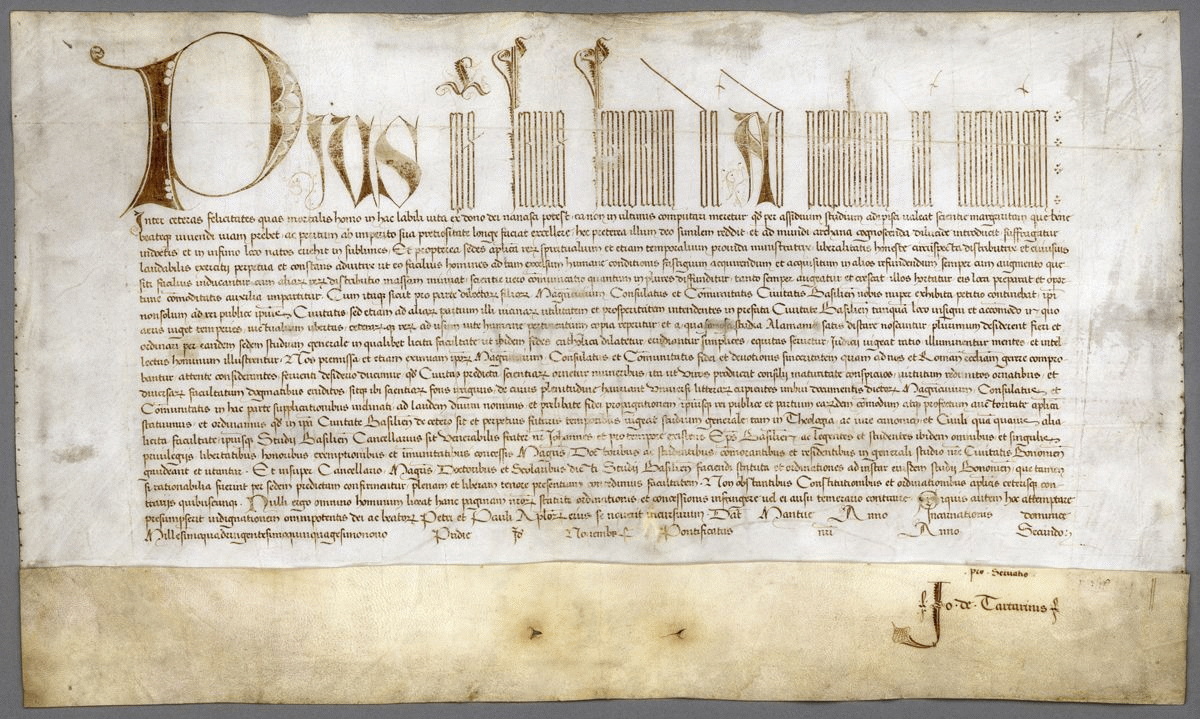 Pius
Inter ceteras felicitates quas mortalis homo in hac labili vita ex dono dei nancisci potest ea non in ultimis computari meretur q̄ per assiduum studium adipisci valeat scientie margaritam que bene
beateq; vivendi viam prebet ac peritum ab imperito sua pretiositate longe faciat excellere hec preterea illum deo similem reddit et ad mundi archana cognoscenda dilucide introducit suffragatur
indoctis et in infimo loco natos evehit in sublimes. Et propterea sedes aplica rerū spiritualium et etiam temporalium provida ministratrix liberalitatis honeste circumspecta distributrix et cuiusvis
laudabilis exercitij perpetua et constans adiutrix ut eo facilius homines ad tam excelsum humane conditionis fastigium acquirendum et acquisitum in alios refundendum semper cum augmento que
siti facilius inducantur cum aliarū rerū distributio massam minuat scientie vero communicatio quantum in plures diffunditur tanto semper augeatur et crescat illos hortatur eis loca preparat et opor
tune cōmoditatis auxilia impartitur. Cum itaq; sicut pro parte dilectorū filiorū Magistrorum Consulatus et Comunitatis Civitatis Basilien̄ nobis nuper exhibita petitio continebat ipi
non solum ad rei publice ipius Civitatis sed etiam ad aliarū partium illi vicinarū utilitatem et prosperitatem intendentes in prefata Civitate Basilien̄ tanquā loco insigni et accomodo in quo
aeris viget temperies victualium ubertas ceterarūq; rerū ad usum vite humane pertinentium copia reperitur et a qua studia Alamanie satis distare noscuntur plurimum desiderent fieri et
ordinari per eandem sedem studium generale in qualibet licita facultate ut ibidem fides catholica dilatetur erudiantur simplices equitas servetur Judicij vigeat ratio illuminentur mentes et intel
lectus hominum illustrentur. Nos premissa et etiam eximiam ipōrū Magistrorum Consulatus et Comunitatis fidei et devotionis sinceritatem quam ad nos et Romanā ecctiam gerere compro
bantur attente considerantes ferventi desiderio ducimur q̄ Civitas predicta scientiarū ornetur muneribus ita ut viros producat consilij maturitate conspicuos virtutum redimitos ornatibus et
diversarū facultatum dogmatibus eruditos sitq; ibi scientiarū fons irriguus de cuius plenitudine hauriant universi litterarū cupientes imbui documentis dictorū Magistrorum Consulatus et
Comunitatis in hac parte supplicationibus inclinati ad laudem divini nominis et prelibate fidei propagationem ipiusq; rei publice et partium earūdem cōmodum atq; profectum auctoritate aplica
statuimus et ordinamus q̄ in ipa Civitate Basilien̄ de cetero sit et perpetuis futuris temporibus vigeat studium generale tam in Theologia ac iure canonico et Civili quā quavis alia
licita facultate ipiusq; Studij Basilien̄ Cancellarius sit Venerabilis frater nr̄ Johannes et pro tempore existens Ep̄s Basilien̄ ac legentes et studentes ibidem omnibus et singulis
privilegijs libertatibus honoribus exemptionibus et imunitatibus concessis Magr̄is Doctoribus ac studentibus comorantibus et residentibus in generali studio nr̄e Civitatis Bononien̄
gaudeant et utantur. Et insuper Cancellario Magr̄is Doctoribus et Scolaribus dicti Studij Basilien̄ faciendi statuta et ordinationes ad instar eiusdem studij Bononien̄ que tamen
si rationabilia fuerint per sedem predictam confirmentur plenam et liberam tenore presentium concedimus facultatem. Non obstantibus Constitutionibus et ordinationibus aplicis ceterisq; con
trarijs quibuscunq;. Nulli ergo omnino hominum liceat hanc paginam nr̄orū statuti ordinationis et concessionis infringere vel ei ausu temerario contraire. Siquis autem hoc attemptare
presumpserit indignationem omnipotentis dei ac beatorū Petri et Pauli Aplorū eius se noverit incursurum Dat̄ Mantue Anno Incarnationis dominice
Millesimoquadringentesimoquinquagesimonono Pridie Id̄ Novembr̄ Pontificatus nr̄i Anno Secundo
pro Servatio
Jo. de Tartarinis